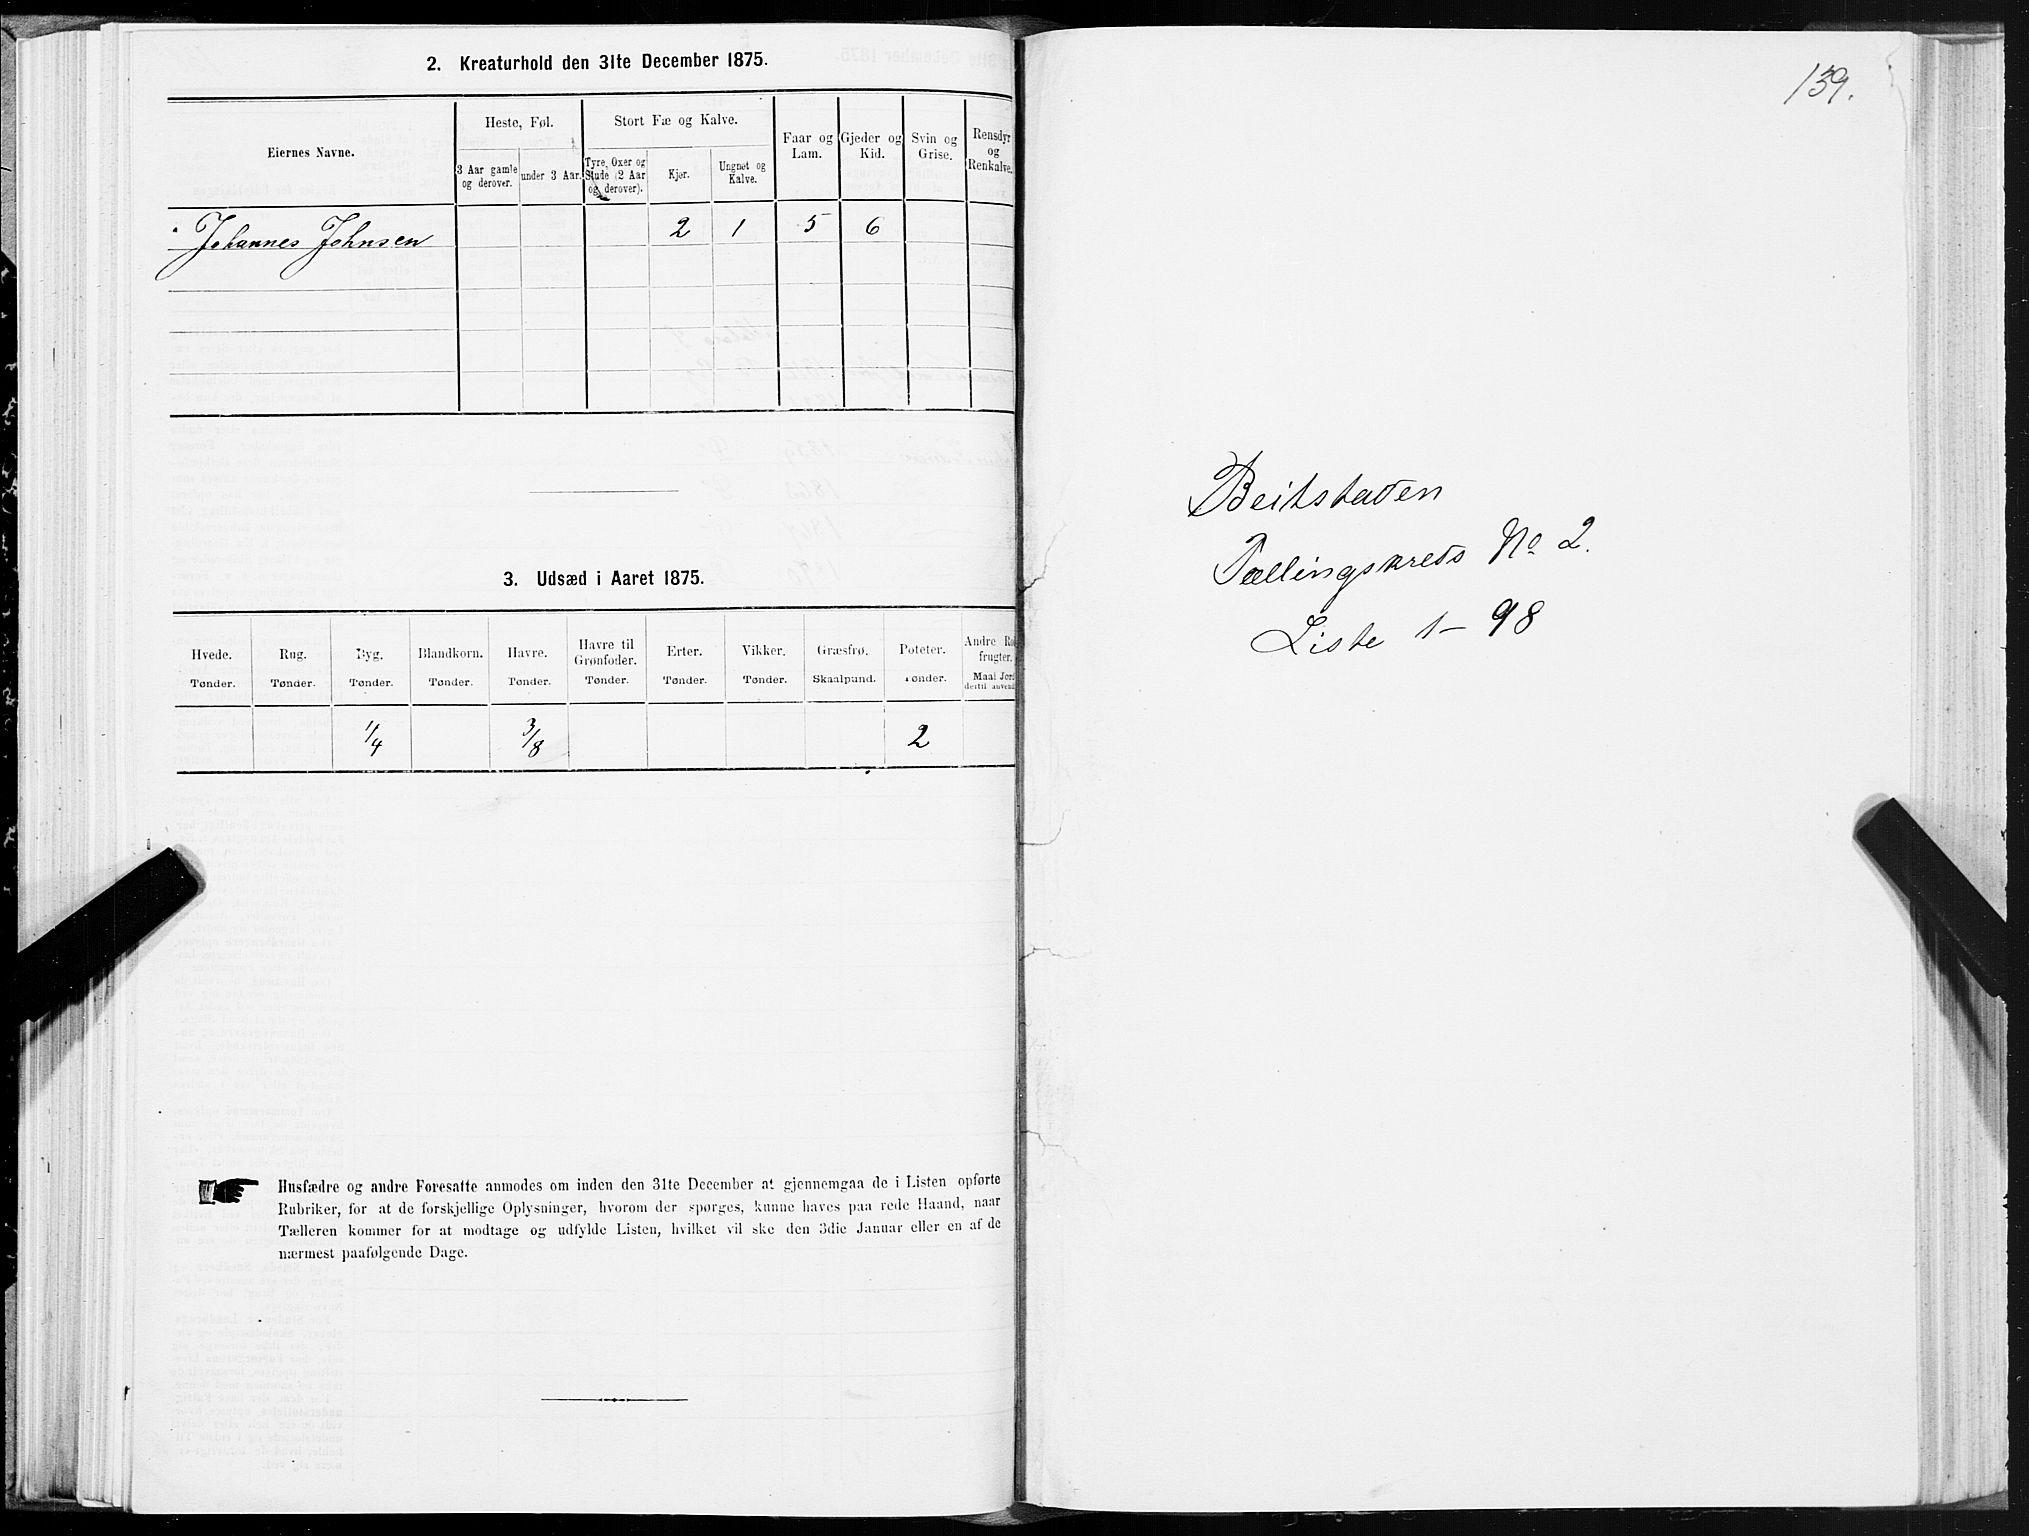 2. Kreaturhold den 31te December 1875.
Eiernes Navne.
Heste, Føl.
Stort Fæ og Kalve.
Faar og Lam.
Gjeder og Kid.
Svin og Grise.
Rensdyr og Renkalve.
3 Aar gamle og derover.
under 3 Aar.
Tyre, Oxer og Stude (2 Aar og derover).
Kjør.
Ungnøt og Kalve.
Johannes Johnsen 2 1 5 6
3. Udsæd i Aaret 1875.
Hvede. Rug. Byg. Blandkorn. Havre. Havre til Grønfoder. Erter. Vikker. Græsfrø. Poteter. Andre Ro frugter.
Tønder. Tønder. Tønder. Tønder. Tønder. Tønder. Tønder. Tønder. Skaalpund. Tønder. Maal Jord dertil anvend
1/4 3/8 2
Husfædre og andre Foresatte anmodes om inden den 31te December at gjennemgaa de i Listen opførte
Rubriker, for at de forskjellige Oplysninger, hvorom der spørges, kunne haves paa rede Haand, naar
Tælleren kommer for at modtage og udfylde Listen, hvilket vil ske den 3die Januar eller en af de
nærmest paafølgende Dage.
139.
Beitstaden
Tællingskreds No 2.
Liste 1-98